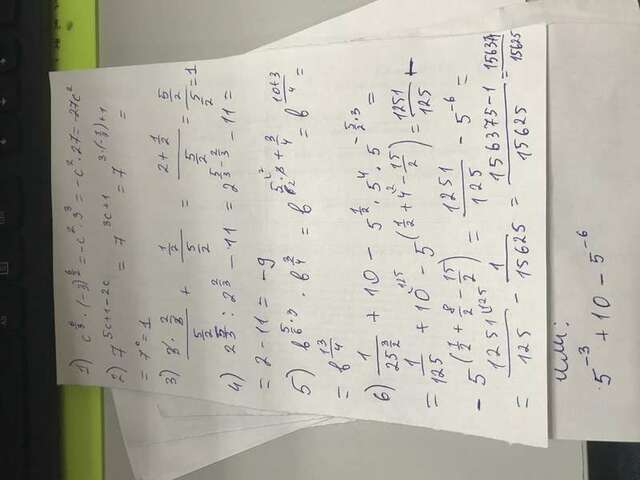 1) c^(6/3) · (-1/3)^(6/2) = -c^2 · 3^3 = -c^2 · 27 = -27c^2
2) 7^(5c+1-2c) = 7^(3c+1) = 7^(3·(-1/3)+1) =
= 7^0 = 1
3) (3 · 2/3)/(5/2) + (1/2)/(5/2) = (2 + 1/2)/(5/2) = (5/2)/(5/2) = 1
4) 2^(5/3) : 2^(2/3) - 11 = 2^(5/3 - 2/3) - 11 =
= 2 - 11 = -9
5) b^(5/6 · 3) · b^(3/4) = b^(5/2 + 3/4) = b^((10+3)/4) =
= b^(13/4)
6) 1/25^(3/2) + 10 - 5^(1/2) · 5^4 · 5^(-5/2 · 3) =
= 1/125 + 10^(125 - 5^(1/2 + 4 - 15/2) = 1251/125 -
- 5^(1/2 + 8/2 - 15/2) = 1251/125 - 5^-6 =
= 1251^(125/125 - 1/15625 = (156375-1)/15625 = 156374/15625
или:
5^-3 + 10 - 5^-6